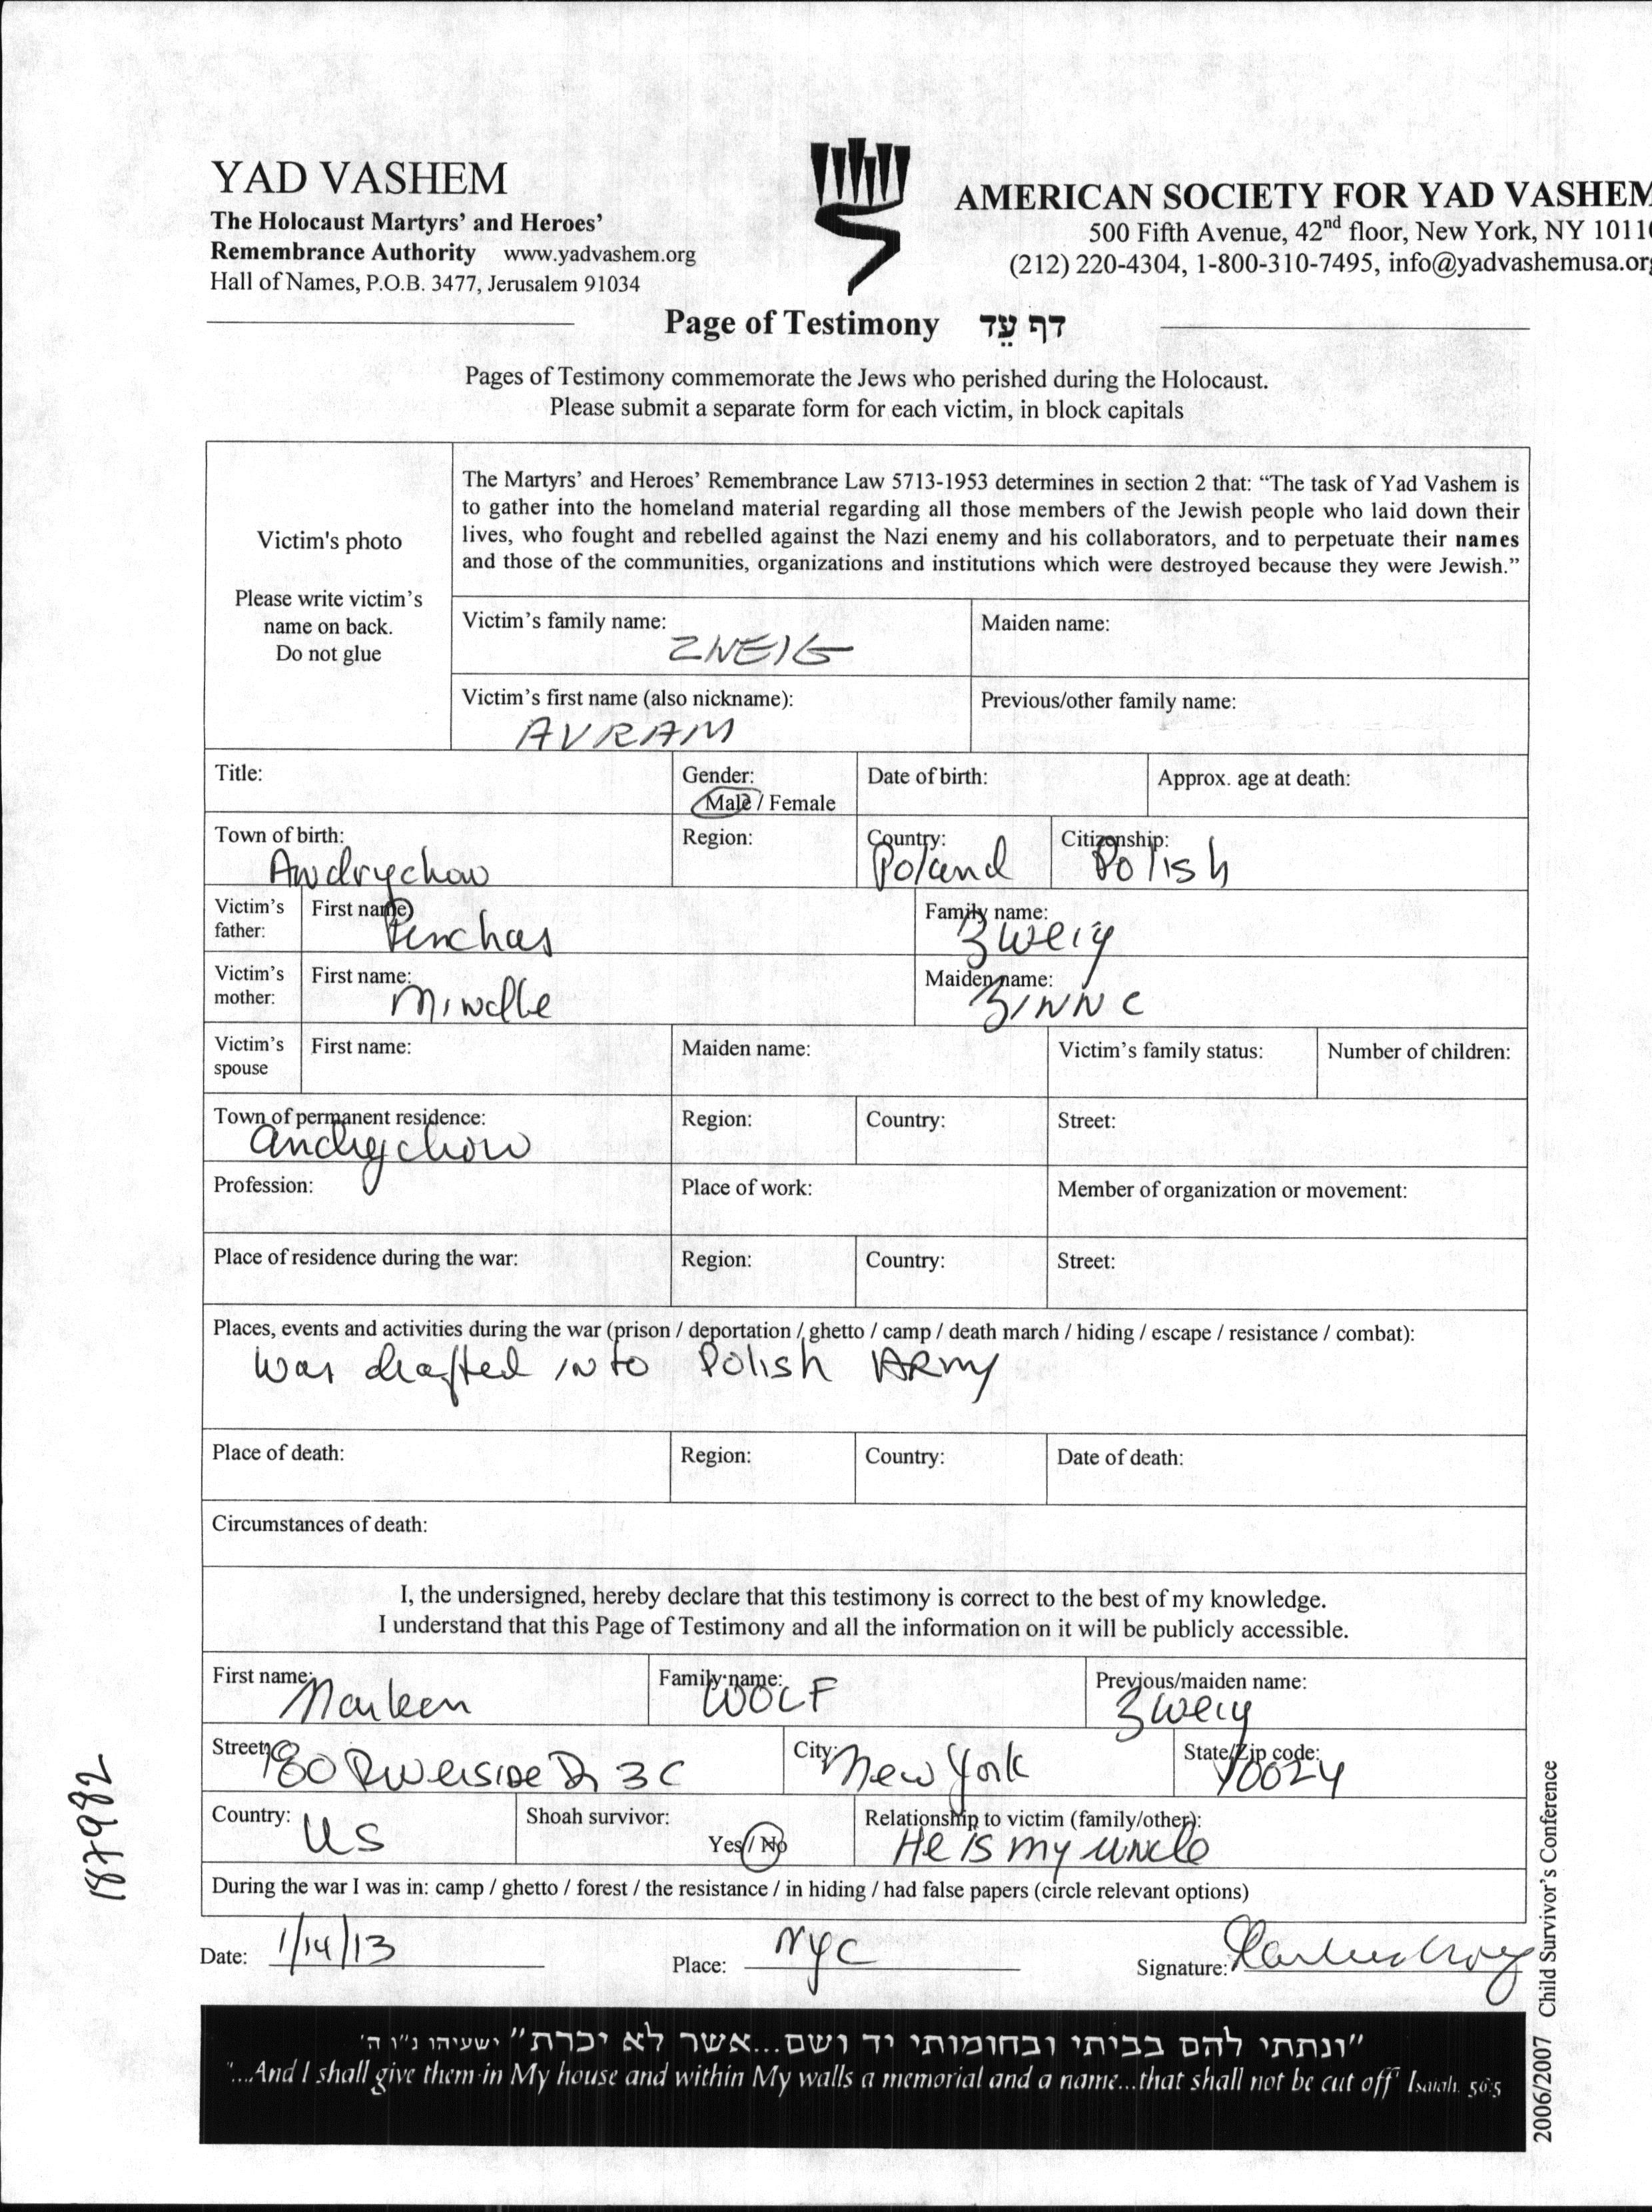 YAD VASHEM
The Holocaust Martyrs' and Heroes'
Remembrance Authority www.yadvashem.org
Hall of Names, P.O.B. 3477, Jerusalem 91034
AMERICAN SOCIETY FOR YAD VASHEM
500 Fifth Avenue, 42nd floor, New York, NY 1011
(212) 220-4304, 1-800-310-7495, info@yadvashemusa.org
Page of Testimony דף עֵד
Pages of Testimony commemorate the Jews who perished during the Holocaust.
Please submit a separate form for each victim, in block capitals
Victim's photo
Please write victim's
name on back.
Do not glue
The Martyrs' and Heroes' Remembrance Law 5713-1953 determines in section 2 that: "The task of Yad Vashem is
to gather into the homeland material regarding all those members of the Jewish people who laid down their
lives, who fought and rebelled against the Nazi enemy and his collaborators, and to perpetuate their names
and those of the communities, organizations and institutions which were destroyed because they were Jewish."
Victim's family name: ZWEIG
Maiden name:
Victim's first name (also nickname): AVRAM
Previous/other family name:
Title:
Gender: Male / Female
Date of birth:
Approx. age at death:
Town of birth: Andrychow
Region:
Country: Poland
Citizenship: Polish
Victim's father: First name: Pinchas
Family name: Zweig
Victim's mother: First name: Mindle
Maiden name:
Victim's spouse First name:
Maiden name:
Victim's family status:
Number of children:
Town of permanent residence: Andrychow
Region:
Country:
Street:
Profession:
Place of work:
Member of organization or movement:
Place of residence during the war:
Region:
Country:
Street:
Places, events and activities during the war (prison / deportation / ghetto / camp / death march / hiding / escape / resistance / combat):
Was drafted into Polish ARmy
Place of death:
Region:
Country:
Date of death:
Circumstances of death:
I, the undersigned, hereby declare that this testimony is correct to the best of my knowledge.
I understand that this Page of Testimony and all the information on it will be publicly accessible.
First name: Marleen
Family name: WOLF
Previous/maiden name: Zweig
Street: 180 Riverside Dr 3C
City: New York
State/Zip code: 10024
Country: US
Shoah survivor: Yes / No
Relationship to victim (family/other): He is my uncle
During the war I was in: camp / ghetto / forest / the resistance / in hiding / had false papers (circle relevant options)
Date: 1/14/13
Place: NYC
Signature:
"ונתתי להם בביתי ובחומותי יד ושם...אשר לא יכרת" ישעיהו נ"ו ה'
"...And I shall give them in My house and within My walls a memorial and a name...that shall not be cut off" Isaiah. 56:5
187982
2006/2007 Child Survivor's Conference